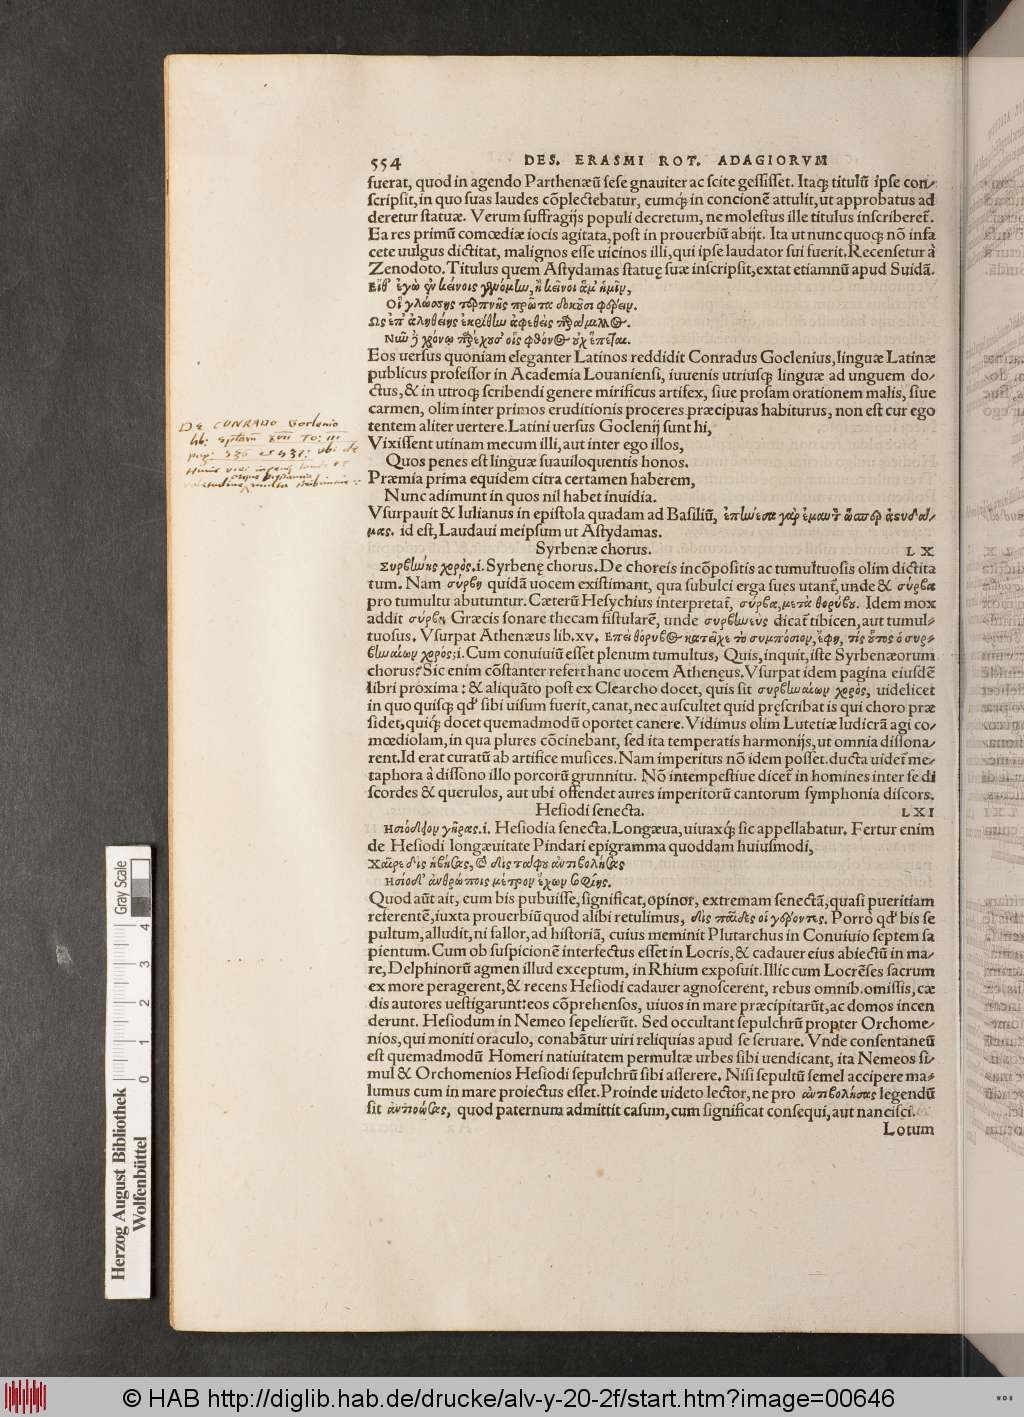 554 DES. ERASMI ROT. ADAGIORVM
fuerat, quod in agendo Parthenæū sese gnauiter ac scite gessisset. Itaq; titulū ipse con-
scripsit, in quo suas laudes cōplectebatur, eumq; in concionē attulit, ut approbatus ad
deretur statuæ. Verum suffragijs populi decretum, ne molestus ille titulus inscriberet̃.
Ea res primū comœdiæ iocis agitata, post in prouerbiū abijt. Ita ut nunc quoq; nō infa
cete uulgus dictitat, malignos esse uicinos illi, qui ipse laudator sui fuerit. Recensetur à
Zenodoto. Titulus quem Astydamas statuę suæ inscripsit, extat etiamnū apud Suidā.
Εἴθ' ἐγὼ ἐν κείνοις γενόμην, ἢ κεῖνοι ἅμ' ἡμῖν,
Οἳ γλώσσης τερπνῆς πρῶτα δοκοῦσι φέρειν.
Ως ἐπ' ἀληθείης ἐκρίθην ἀφεθεὶς παράμιλλος.
Νῦν δὲ χρόνῳ παρέχουσ' οἷς φθόνος οὐχ ἕπεται.
Eos uersus quoniam eleganter Latinos reddidit Conradus Goclenius, linguæ Latinæ
publicus professor in Academia Louaniensi, iuuenis utriusq; linguæ ad unguem do-
ctus, & in utroq; scribendi genere mirificus artifex, siue prosam orationem malis, siue
carmen, olim inter primos eruditionis proceres præcipuas habiturus, non est cur ego
tentem aliter uertere. Latini uersus Goclenij sunt hi,
Vixissent utinam mecum illi, aut inter ego illos,
Quos penes est linguæ suauiloquentis honos.
Præmia prima equidem citra certamen haberem,
Nunc adimunt in quos nil habet inuidia.
Vsurpauit & Iulianus in epistola quadam ad Basiliū, ἐπῄνεσα γὰρ ἐμαυτὸν ὥσπερ ἀςυδά-
μας. id est, Laudaui meipsum ut Astydamas.
Syrbenæ chorus. LX
Συρβήνης χορός. i. Syrbenę chorus. De choreis incōpositis ac tumultuosis olim dictita
tum. Nam σύρβη quidā uocem existimant, qua subulci erga sues utant̃, unde & σύρβα
pro tumultu abutuntur. Cæterū Hesychius interpretat̃, σύρβα, μετὰ θορύβου. Idem mox
addit σύρβη Græcis sonare thecam fistularē, unde συρβηνεὺς dicat̃ tibicen, aut tumul-
tuosus. Vsurpat Athenæus lib. xv. Επεὶ θόρυβος κατεῖχε τὸ συμπόσιον, ἔφη, τίς οὗτος ὁ συρ-
βηναίων χορός; i. Cum conuiuiū esset plenum tumultus, Quis, inquit, iste Syrbenæorum
chorus? Sic enim cōstanter refert hanc uocem Athenęus. Vsurpat idem pagina eiusdē
libri proxima: & aliquāto post ex Clearcho docet, quis sit συρβηναίων χορός, uidelicet
in quo quisq; qd' sibi uisum fuerit, canat, nec auscultet quid pręscribat is qui choro præ
sidet, quiq; docet quemadmodū oportet canere. Vidimus olim Lutetiæ ludicrā agi co-
mœdiolam, in qua plures cōcinebant, sed ita temperatis harmonijs, ut omnia dissona-
rent. Id erat curatū ab artifice musices. Nam imperitus nō idem posset. ducta uidet̃ me-
taphora à dissono illo porcorū grunnitu. Nō intempestiue dicet̃ in homines inter se di
scordes & querulos, aut ubi offendet aures imperitorū cantorum symphonia discors.
Hesiodi senecta. LXI
Ησιόδειον γῆρας. i. Hesiodia senecta. Longæua, uiuaxq; sic appellabatur. Fertur enim
de Hesiodi longæuitate Pindari epigramma quoddam huiusmodi,
Χαῖρε δὶς ἡβήσας, καὶ δὶς τάφου ἀντιβολήσας
Ησίοδ' ἀνθρώποις μέτρον ἔχων σοφίης.
Quod aūt ait, cum bis pubuisse, significat, opinor, extremam senectā, quasi pueritiam
referentē, iuxta prouerbiū quod alibi retulimus, δὶς παῖδες οἱ γέροντες. Porrò qd' bis se
pultum, alludit, ni fallor, ad historiā, cuius meminit Plutarchus in Conuiuio septem sa
pientum. Cum ob suspicionē interfectus esset in Locris, & cadauer eius abiectū in ma-
re, Delphinorū agmen illud exceptum, in Rhium exposuit. Illic cum Locrēses sacrum
ex more peragerent, & recens Hesiodi cadauer agnoscerent, rebus omnib. omissis, cæ
dis autores uestigarunt: eos cōprehensos, uiuos in mare præcipitarūt, ac domos incen
derunt. Hesiodum in Nemeo sepelierūt. Sed occultant sepulchrū propter Orchome-
nios, qui moniti oraculo, conabātur uiri reliquias apud se seruare. Vnde consentaneū
est quemadmodū Homeri natiuitatem permultæ urbes sibi uendicant, ita Nemeos si-
mul & Orchomenios Hesiodi sepulchrū sibi asserere. Nisi sepultū semel accipere ma-
lumus cum in mare proiectus esset. Proinde uideto lector, ne pro ἀντιβολήσας legendū
sit ἀντιώσας, quod paternum admittit casum, cum significat consequi, aut nancisci.
Lotum
DE CONRADO Goclenio
lib: epistarū XVII TO: III
pag: 536 et 537: ubi de
Herzog August Bibliothek
Wolfenbüttel
Gray Scale
0 1 2 3 4
© HAB http://diglib.hab.de/drucke/alv-y-20-2f/start.htm?image=00646